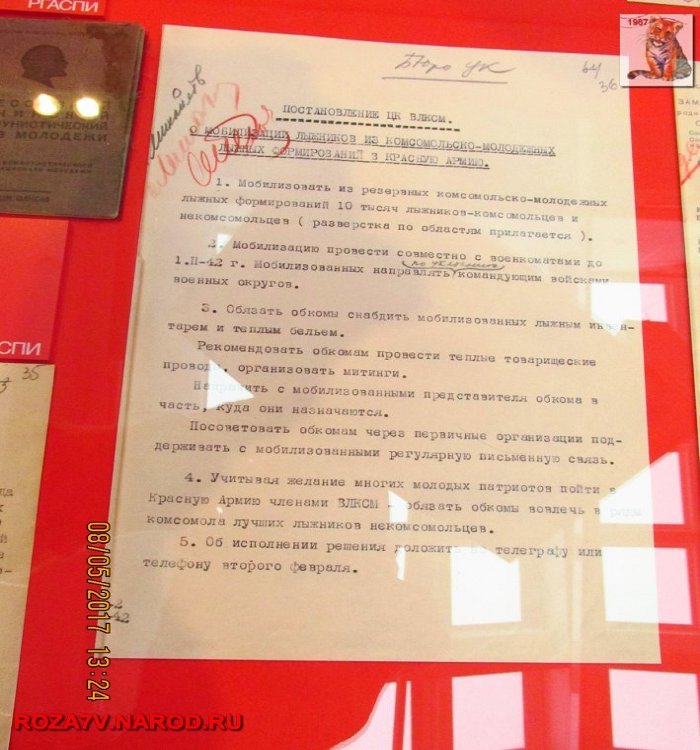 РГАСПИ
1967
Бюро ЦК
64
36
Михайлов
ПОСТАНОВЛЕНИЕ ЦК ВЛКСМ.
О МОБИЛИЗАЦИИ ЛЫЖНИКОВ ИЗ КОМСОМОЛЬСКО-МОЛОДЕЖНЫХ
ЛЫЖНЫХ ФОРМИРОВАНИЙ В КРАСНУЮ АРМИЮ.
1. Мобилизовать из резервных комсомольско-молодежных
лыжных формирований 10 тысяч лыжников-комсомольцев и
некомсомольцев ( разверстка по областям прилагается ).
2. Мобилизацию провести совместно с военкоматами до
1.П-42 г. Мобилизованных направлять командующим войсками
военных округов.
3. Обязать обкомы снабдить мобилизованных лыжным инвен-
тарем и теплым бельем.
Рекомендовать обкомам провести теплые товарищеские
проводы, организовать митинги.
Направить с мобилизованными представителя обкома в
часть, куда они назначаются.
Посоветовать обкомам через первичные организации под-
держивать с мобилизованными регулярную письменную связь.
4. Учитывая желание многих молодых патриотов пойти в
Красную Армию членами ВЛКСМ - обязать обкомы вовлечь в ряды
комсомола лучших лыжников некомсомольцев.
5. Об исполнении решения доложить по телеграфу или
телефону второго февраля.
42
МОЛОДЕЖИ
АСПИ
35
ЗАМ
08/05/2017 13:24
ROZAYV.NAROD.RU